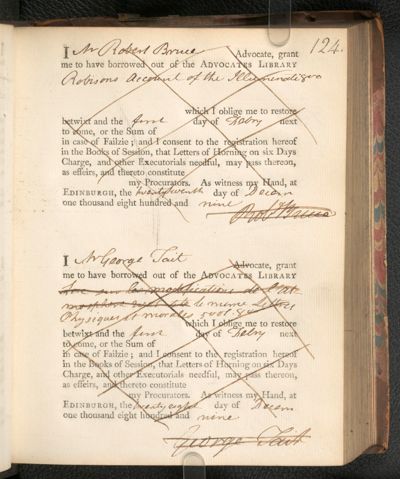 124.
I Mr Robert Bruce Advocate, grant
me to have borrowed out of the ADVOCATES LIBRARY
Robisons Account of the Illuminati 8vo
which I oblige me to restore
betwixt and the first day of Febry next
to come, or the Sum of
in case of Failzie; and I consent to the registration hereof
in the Books of Session, that Letters of Horning on six Days
Charge, and other Executorials needful, may pass thereon,
as effeirs, and thereto constitute
my Procurators. As witness my Hand, at
EDINBURGH, the twentyseventh day of Decem
one thousand eight hundred and nine
Robt Bruce
I Mr George Tait Advocate, grant
me to have borrowed out of the ADVOCATES LIBRARY
sur les modifications de l'at
mosphere le meme Lettres
Physiques et morales 5 vol. 8vo
which I oblige me to restore
betwixt and the first day of Febry next
to come, or the Sum of
in case of Failzie; and I consent to the registration hereof
in the Books of Session, that Letters of Horning on six Days
Charge, and other Executorials needful, may pass thereon,
as effeirs, and thereto constitute
my Procurators. As witness my Hand, at
EDINBURGH, the twenty eight day of Decem
one thousand eight hundred and nine
George Tait